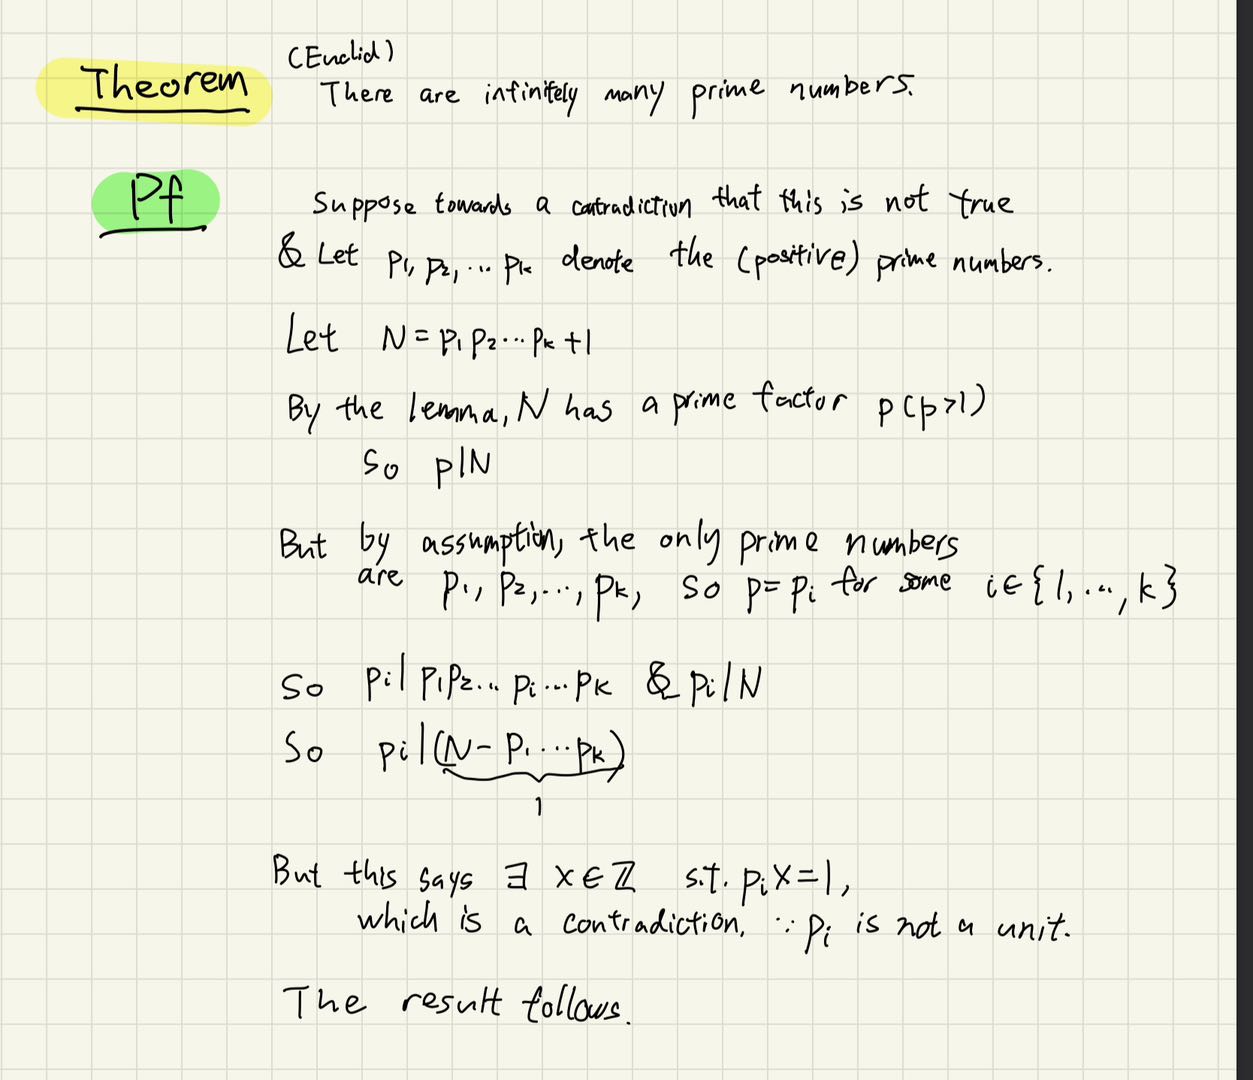 (Euclid)
Theorem There are infinitely many prime numbers.
Pf Suppose towards a contradiction that this is not true
& Let p₁, p₂, ... pₖ denote the (positive) prime numbers.
Let N = p₁ p₂ ... pₖ + 1
By the lemma, N has a prime factor p (p>1)
So p|N
But by assumption, the only prime numbers
are p₁, p₂, ..., pₖ, so p = pᵢ for some i ∈ {1, ..., k}
So pᵢ | p₁p₂ ... pᵢ ... pₖ & pᵢ | N
So pᵢ | (N - p₁ ... pₖ)
1
But this says ∃ x ∈ ℤ s.t. pᵢx = 1,
which is a contradiction, ∵ pᵢ is not a unit.
The result follows.